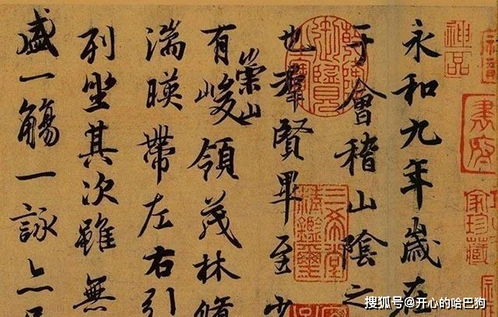 神品
永和九年歲在
于會稽山陰之
也羣賢畢至少
有崇山峻領茂林脩
湍暎帶左右引
列坐其次雖無
盛一觴一詠亦足
搜狐号@开心的哈巴狗